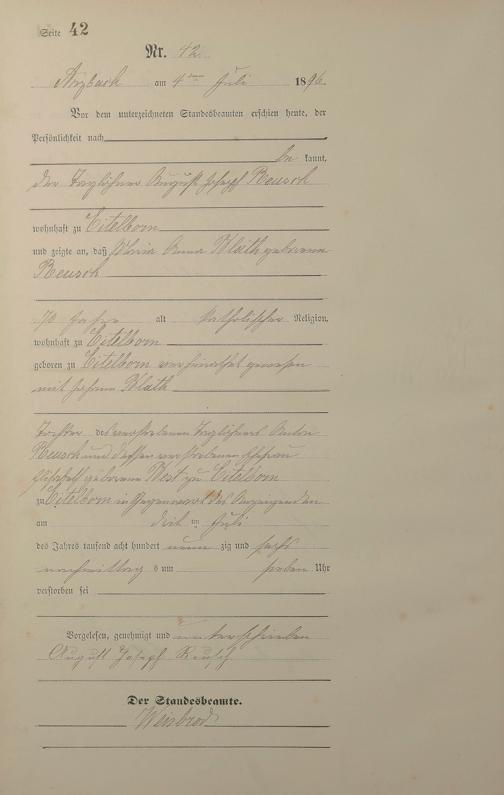 Seite 42
Nr. 42
Arzbach am 4ten Juli 1896
Vor dem unterzeichneten Standesbeamten erschien heute, der
Persönlichkeit nach
be kannt,
der Taglöhner August Joseph Reusch
wohnhaft zu Eitelborn
und zeigte an, daß Maria Anna Klath geborene
Reusch
70 Jahre alt katholischer Religion,
wohnhaft zu Eitelborn
geboren zu Eitelborn verheirathet gewesen
mit Johann Klath
Tochter des verstorbenen Taglöhners Anton
Reusch und dessen verstorbenen Ehefrau
Elisabeth geborene West zu Eitelborn
zu Eitelborn in Gegenwart des Anzeigenden
am drit ten Juli
des Jahres tausend acht hundert neun zig und sechs
nachmittag s um sieben Uhr
verstorben sei
Vorgelesen, genehmigt und unterschrieben
August Joseph Reusch
Der Standesbeamte.
Weisbrod